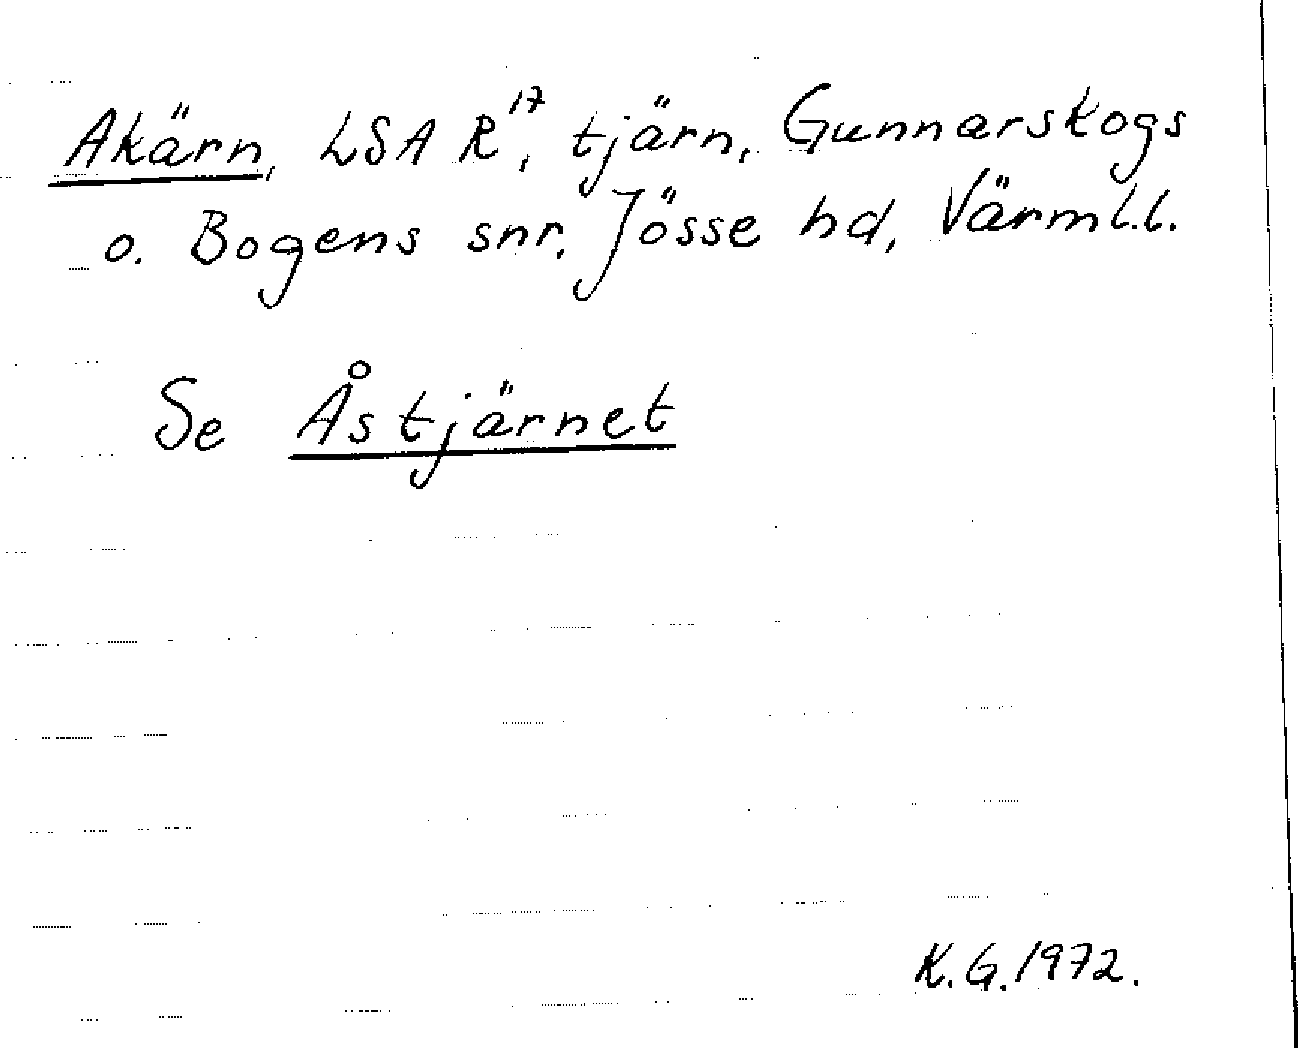 Akärn, LSA R¹⁷, tjärn, Gunnarskogs
o. Bogens snr, Jösse hd, Värml.l.
Se Åstjärnet
K.G. 1972.